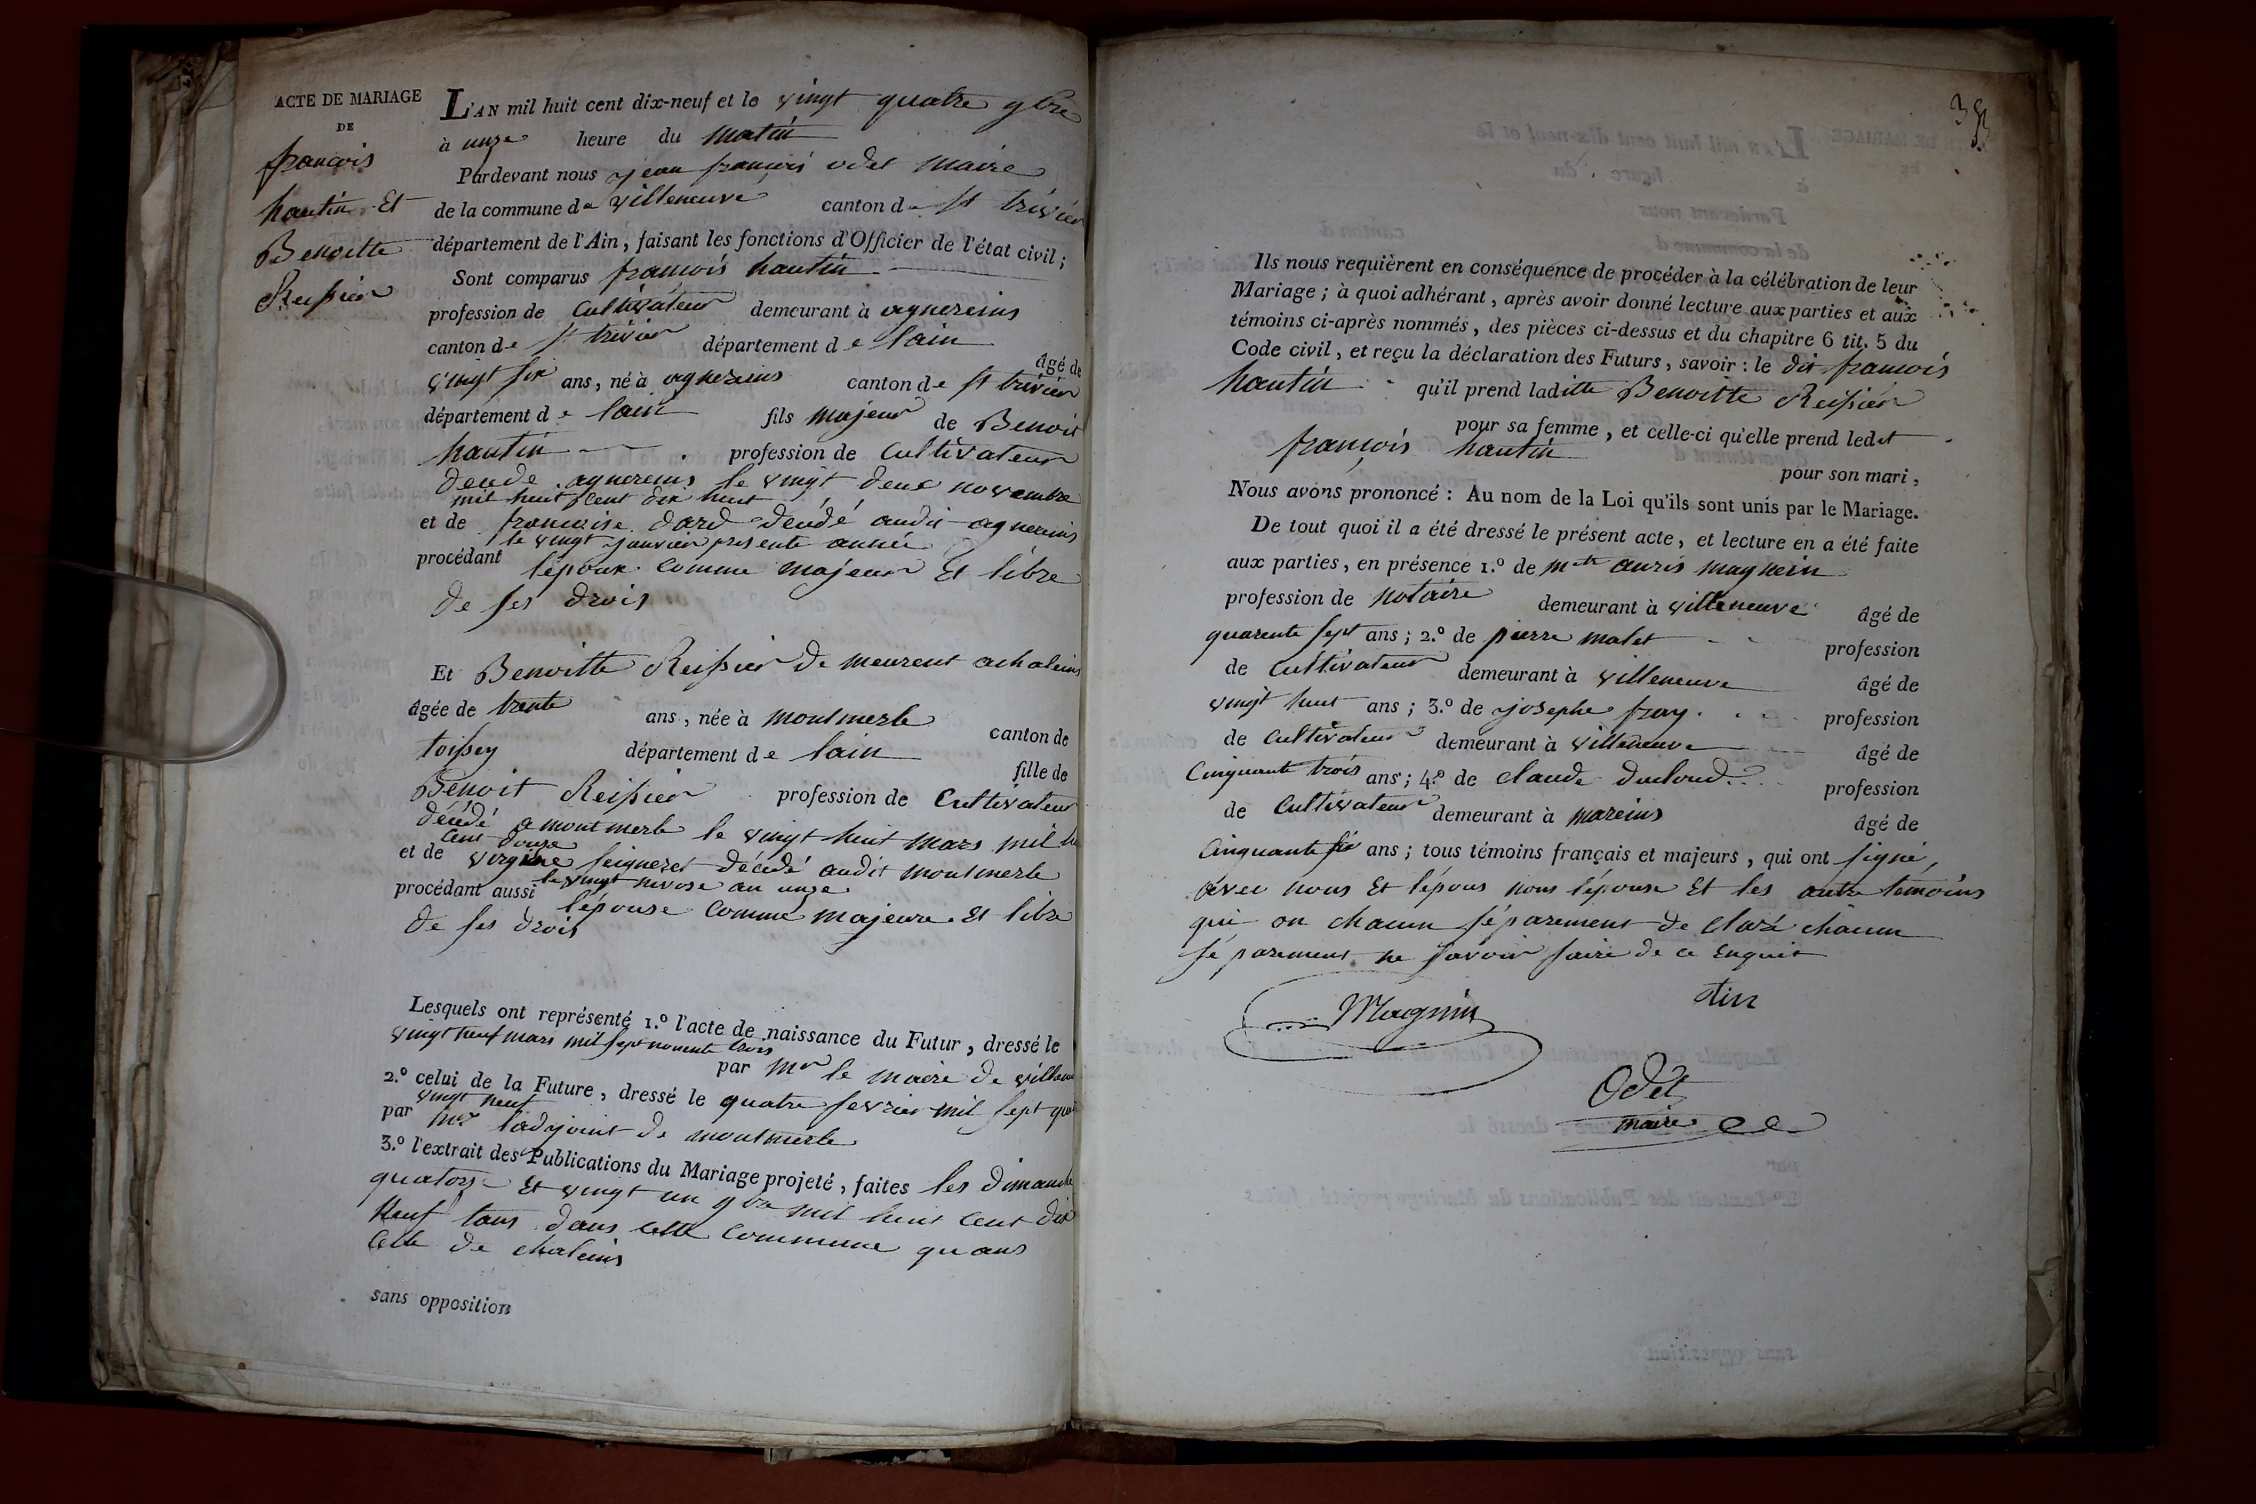 ACTE DE MARIAGE
DE
françois
hantin Et
Benoitte
Reissier
L'AN mil huit cent dix-neuf et le vingt quatre 9bre
à unze heure du matin
Pardevant nous jean françois odet maire
de la commune de villeneuve canton de st trivier
département de l'Ain, faisant les fonctions d'Officier de l'état civil;
Sont comparus françois hantin
profession de Cultivateur demeurant à agnereins
canton de st trivier département de lain âgé de
vingt six ans, né à agnereins canton de st trivier
département de lain fils majeur de Benoit
hantin profession de Cultivateur
décédé agnereins le vingt deux novembre
mil huit cent dix huit
et de francoise dard décédé audit agnereins
le vingt janvier presente année
procédant lépoux comme majeur Et libre
de ses drois
Et Benoitte Reissier de meurent achaleins
âgée de trente ans, née à montmerle canton de
toissey département de lain fille de
Benoit Reissier profession de Cultivateur
décédé a montmerle le vingt huit mars mil
cent douze
et de virgine seigneret décédé audit montmerle
le vingt nivose an unze
procédant aussi lépouse comme majeure Et libre
de ses drois
Lesquels ont représenté 1.º l'acte de naissance du Futur, dressé le
vingt neuf mars mil sept nonente trois
par mr le maire de
2.º celui de la Future, dressé le quatre fevrier mil sept
vingt neuf
par mr ladjoint de montmerle
3.º l'extrait des Publications du Mariage projeté, faites les dimanche
quatorze Et vingt un 9bre mil huit cent dix
neuf tans dans cette commune quans
celle de chaleins
sans opposition
38
Ils nous requièrent en conséquence de procéder à la célébration de leur
Mariage; à quoi adhérant, après avoir donné lecture aux parties et aux
témoins ci-après nommés, des pièces ci-dessus et du chapitre 6 tit. 5 du
Code civil, et reçu la déclaration des Futurs, savoir: le dit francois
hantin qu'il prend laditte Benoitte Reissier
pour sa femme, et celle-ci qu'elle prend ledit
françois hantin pour son mari,
Nous avons prononcé: Au nom de la Loi qu'ils sont unis par le Mariage.
De tout quoi il a été dressé le présent acte, et lecture en a été faite
aux parties, en présence 1.º de mtre magnein
profession de notaire demeurant à villeneuve âgé de
quarente sept ans; 2.º de pierre malet profession
de cultivateur demeurant à villeneuve âgé de
vingt huit ans; 3.º de josephe fray profession
de cultivateur demeurant à villeneuve âgé de
Cinquante trois ans; 4.º de claude ducloud profession
de Cultivateur demeurant à mareins âgé de
Cinquante six ans; tous témoins français et majeurs, qui ont signé,
avec nous Et lépous nons lépouse Et les autre témoins
qui on chacun séparement de claré chacun
sé parement ne savoir faire de ce Enquit
Magnin
tin
Odet
maire